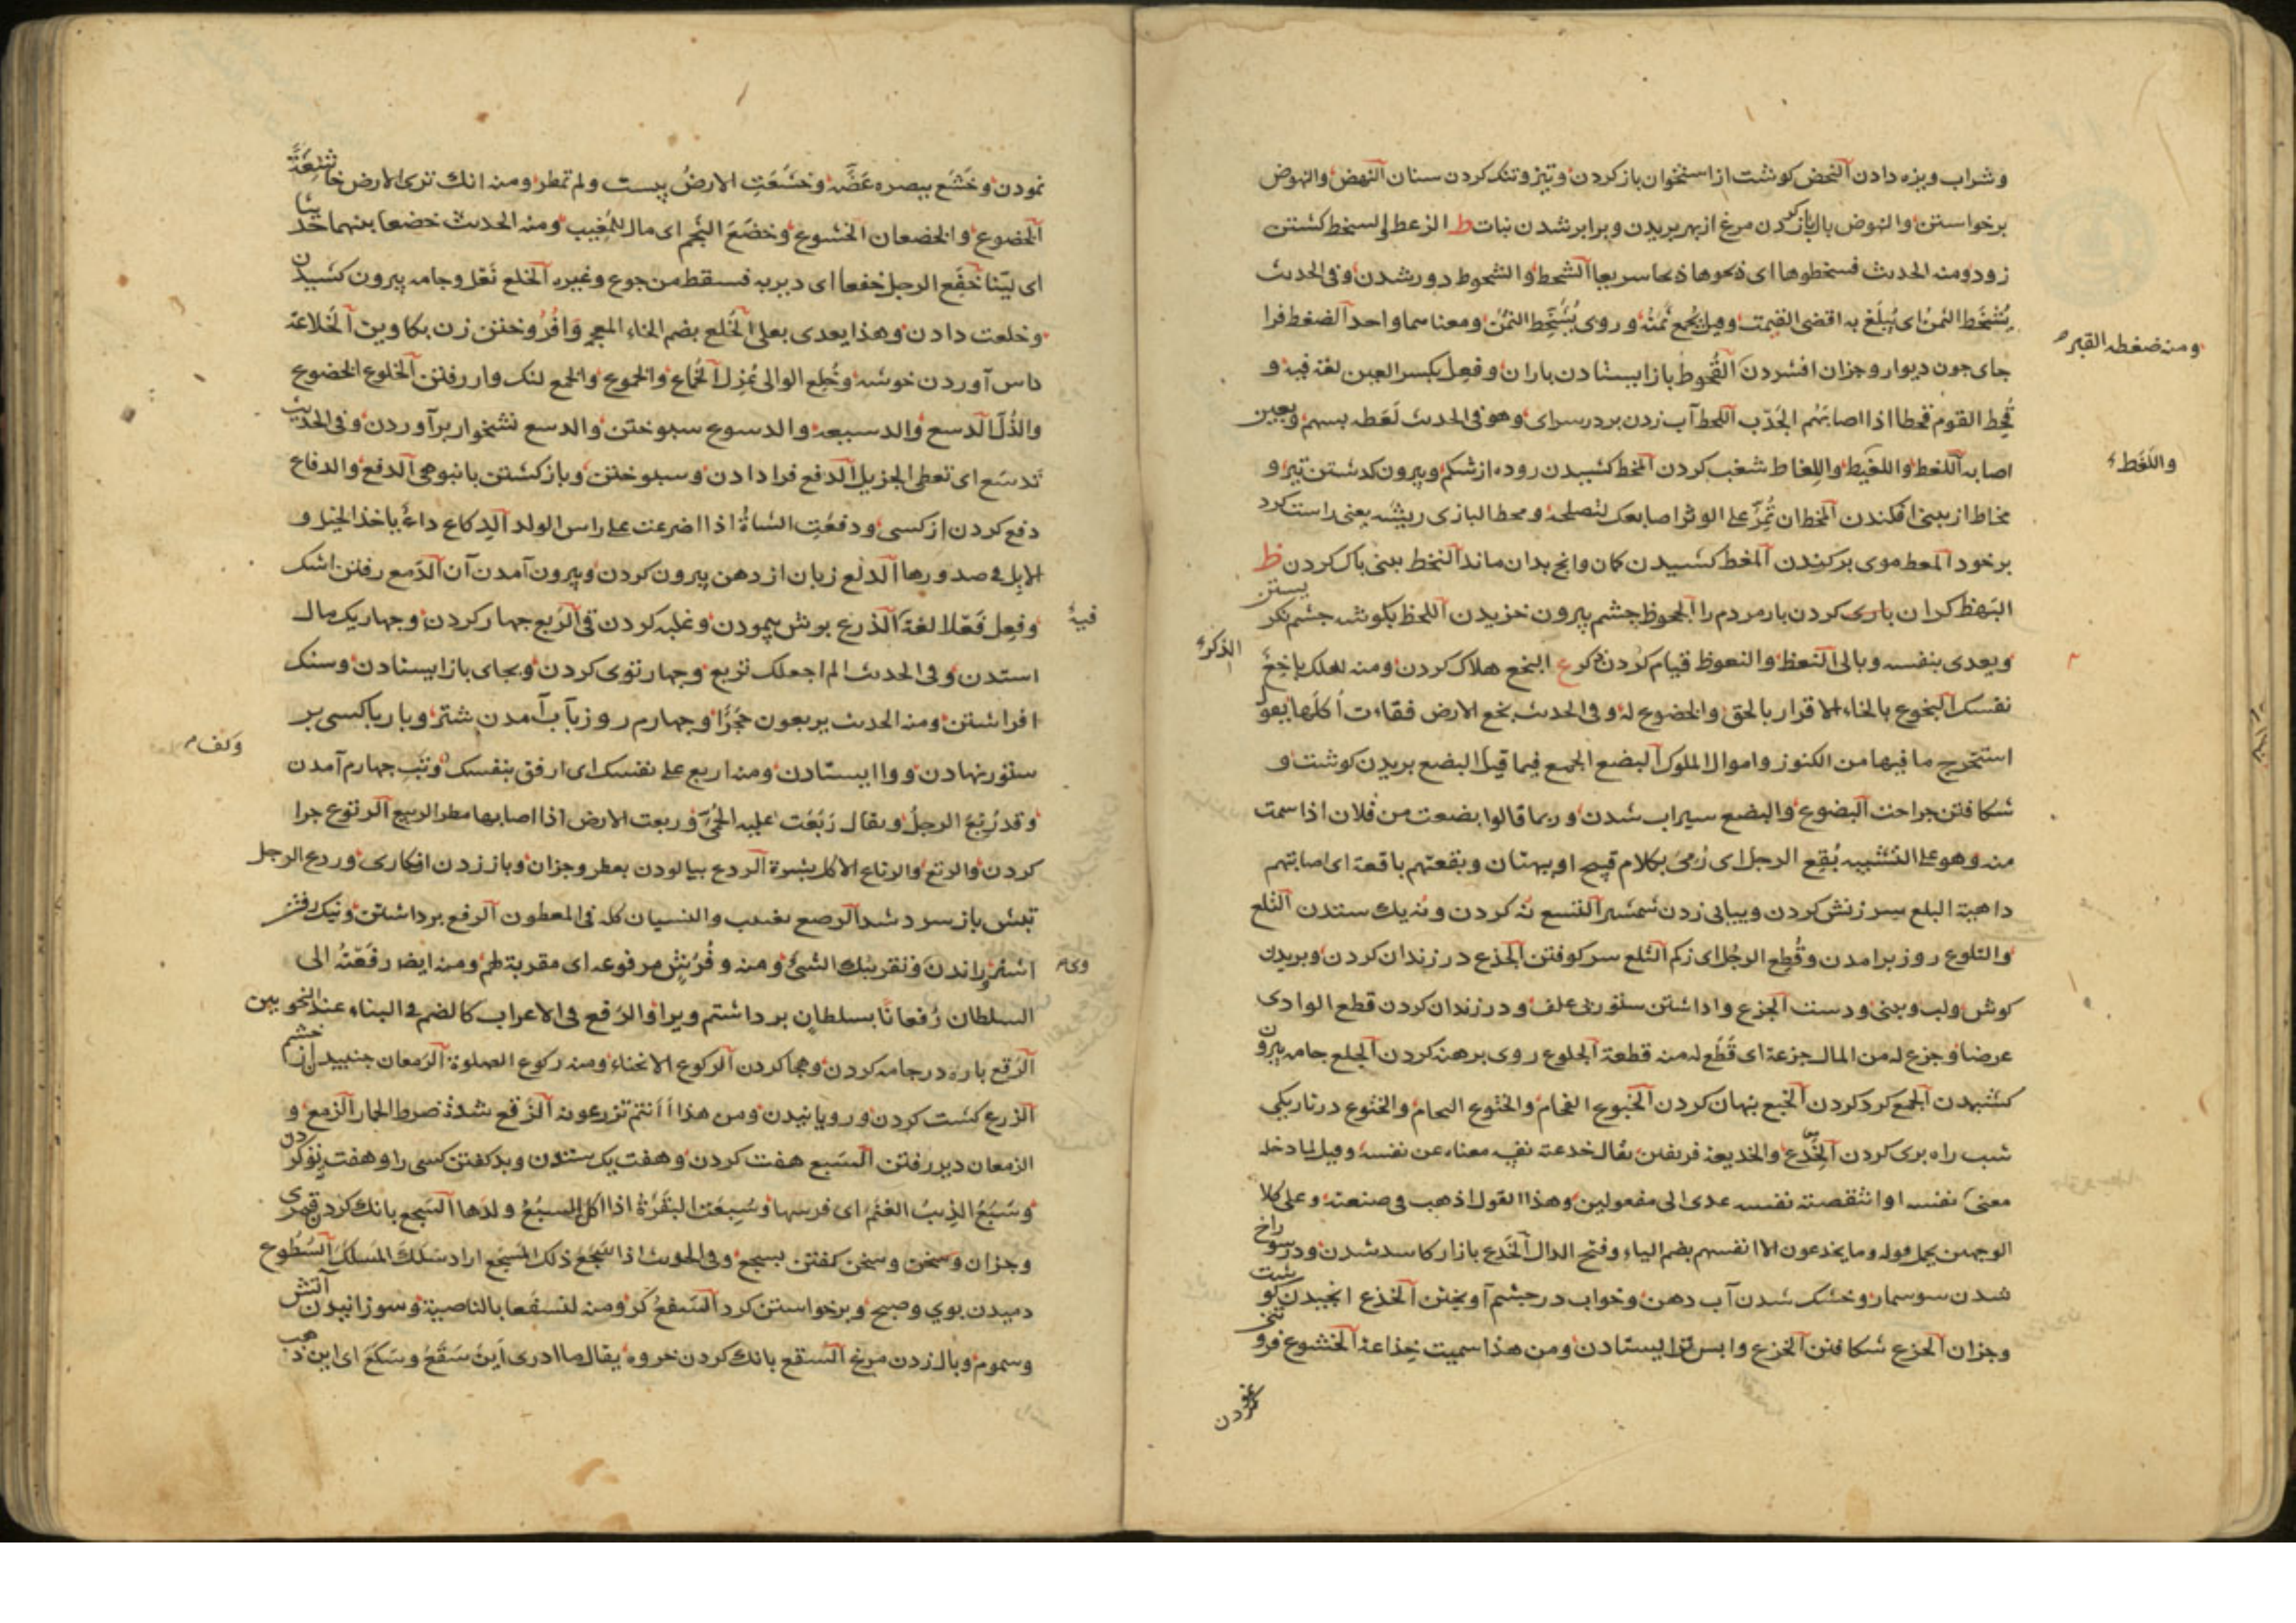 وشراب ویژه دادن النحض کوشت از استخوان باز کردن وتیز وتنک کردن سنان النهض والنهوض
برخواستن والنهوض بال باز کردن مرغ از بهر پریدن وبرابر شدن نبات ط الزعط السخط کشتن
زود ومنه الحدیث فسخطوها ای ذبحوها ذبحا سریعا الشحط والشحوط دور شدن وفی الحدیث
یُشْحَط الثمن ای یُبلَغ به اقصی القیمت وقیل یُجمع ثمنه وروی یُشَحَّط الثمن ومعناهما واحد الضغط فرا
ومنه ضغطه القبر
جای چون دیوار وجزان افشردن القحوط باز ایستادن باران وفعِل بکسر العین لغة فیه و
قُحِط القوم قحطا اذا اصابَهُم الجَدْب اللحط آب زدن بر در سرای وهو فی الحدیث لَعَطه بسهم وبعین
اصابه اللغط واللغیط واللِغاط شغب کردن المخط کشیدن روده از شکم وبیرون کدشتن تیر و
واللَغَط
مخاط از بینی افکندن المخطان تُمِرَّ علی الوتر اصابعک لتصلحه ومخط البازی ریشه یعنی راست کرد
برخود المعط موی برکندن المغط کشیدن کمان وانچ بدان ماند النخط بینی پاک کردن ظ
البَهظ کران باری کردن بار مردم را الجحوظ چشم بیرون خزیدن اللحظ بکوشه چشم نکریستن
ویعدی بنفسه وبالی النعظ والنعوظ قیام کردن ذکر ع البخع هلاک کردن ومنه لعلک باخِعٌ
الذکر
نفسک البخوع بالخاء الاقرار بالحق والخضوع له وفی الحدیث بخع الارض فقاءت اُکلَها یعنی
استخرج ما فیها من الکنوز واموال الملوک البضع الجمع فیما قیل البضع بریدن کوشت و
شکافتن جراحت البضوع والبضع سیراب شدن وربما قالوا بضعت من فلان اذا سمت
منه وهو علی التشبیه بُقِع الرجل ای رُمی بکلام قبیح او ببهتان وبقعتهم باقعة ای اصابتهم
داهیة البلع سرزنش کردن وپیاپی زدن شمشیر التسع نُه کردن ونه یک ستدن التلع
والتلوع روز برامدن وقُطِع الرجُل ای زکم الثلع سر کوفتن الجذع در زندان کردن وبریدن
کوش ولب وبینی ودست الجزع واداشتن ستور بی علف ودر زندان کردن قطع الوادی
عرضا وجزع له من المال جزعة ای قَطَع له منه قطعة الجلوع روی برهنه کردن الجلع جامه بیرون
کشیدن الجمع کرد کردن الخبع پنهان کردن الخبوع الفحام والختوع الحام والختوع در تاریکی
شب راه بری کردن الخَدع والخدیعة فریفتن یقال خدعته نفسه معناه عن نفسه وقیل لما دخله
معنی نفسه او انتقصته نفسه عدی الی مفعولین وهذا القول اذهب فی صنعته وعلی کلا
الوجهین یحمل قوله وما یخدعون الا انفسهم بضم الیاء وفتح الدال الخَدع بازار کاسد شدن ودر سوراخ
شدن سوسمار وخشک شدن آب دهن وخواب در چشم آویختن الخذع انجیدن کوشت
وجزان الخزع شکافتن الخزع وابس تر ایستادن ومن هذا سمیت خزاعة الخشوع فروتنی
نمودن وخَشَع ببصره غَضَّه وخَشَعَتِ الارضُ یبست ولم تمطر ومنه انک تری الارض خاشِعَةً
الخضوع والخضعان الخشوع وخضَعَ النجم ای مال للمغیب ومنه الحدیث خضعا بنهما حدیثا
ای لیّنا خَفِع الرجل خفعا ای دیر به فسقط من جوع وغیره الخلع نَعْل وجامه بیرون کشیدن
وخلعت دادن وهذا یعدی بعلی الخُلع بضم الخاء المعجم وافُروختن زن بکاوین الخُلاعة
داس آوردن خوشه وخُلِع الوالی عُزِل الخُماع والخموع والخمع لنک وار رفتن الخنوع الخضوع
والذُلّ الدسع والدسیعه والدسوع سبوختن والدسع نشخوار برآوردن وفی الحدیث
تدسَع ای تعطی الجزیل الدفع فرا دادن وسبوختن وبازکشتن بانبوهی الدفع والدفاع
دفع کردن از کسی ودفعَتِ الشاةُ اذا اضرعت علی راس الولد الدِکاع داءٌ یاخذ الخیل و
الابل فی صدورها الدلع زبان از دهن بیرون کردن وبیرون آمدن آن الدَمع رفتن اشک
وفعِل فَعَلا لغة الذرع بوش پیمودن وغلبه کردن قی الرَبع چهار کردن وچهار یک مال
فیه
استدن وفی الحدیث الم اجعلک تربع وچهار توی کردن وبجای باز ایستادن وسنک
افراشتن ومنه الحدیث یربعون حَجَرًا وچهارم روز بآب آمدن شتر وبار با کسی بر
ستور نهادن ووا ایستادن ومنه اربع علی نفسک ای ارفق بنفسک وتب چهارم آمدن
وکف
وقد رُبِعَ الرجلُ ویقال رَبَعَت علیه الحُمّی وربعت الارض اذا اصابها مطر الربیع الرتوع چرا
کردن والرتع والرتاع الاکل بشرة الردع بیالودن بعطر وجزان وباز زدن افکاری وردع الرجل
تبش باز سرد شد الرصع الرفع برداشتن ونیک رفتن
اشتر وراندن وتقریبک الشئ ومنه وفُرُشٍ مرفوعه ای مقربة لهم ومنه ایضا رفَعْتُه الی
السلطان رُفعانًا بسلطان برداشتم ویرا والرَفع فی الاعراب کالضم فی البناء عند النحویین
الرَقع باره در جامه کردن وهجا کردن الرکوع الانحناء ومنه رکوع الصلوة الرَمعان جنبیدن از خشم
الزرع کشت کردن ورویانیدن ومن هذا أأنتم تزرعونه الزَقع شدة ضرط الحمار الزمع و
الزمعان دیر رفتن السَبع هفت کردن وهفت یک ستدن وبد کفتن کسی را وهفت توکردن
وسَبَعَ الذِیبُ الغَنَم ای فرسها وسُبِعَت البَقَرَةُ اذا اکل السبُعُ ولدها السَجع بانک کردن قمری
وجزان وسخن وسخن کفتن بسجع وفی الحدیث اذا سَجَعَ ذلک المَسجَع اراد سَلَکَ المَسلَک السُطوع
دمیدن بوی وصبح وبرخواستن کرد السَفع ومنه لنسفعا بالناصیة وسوزانیدن آتش
وسموم وبال زدن مرغ السَقع بانک کردن خروه یقال ما ادری اَینَ سَقَعَ وسَکَعَ ای این ذهب